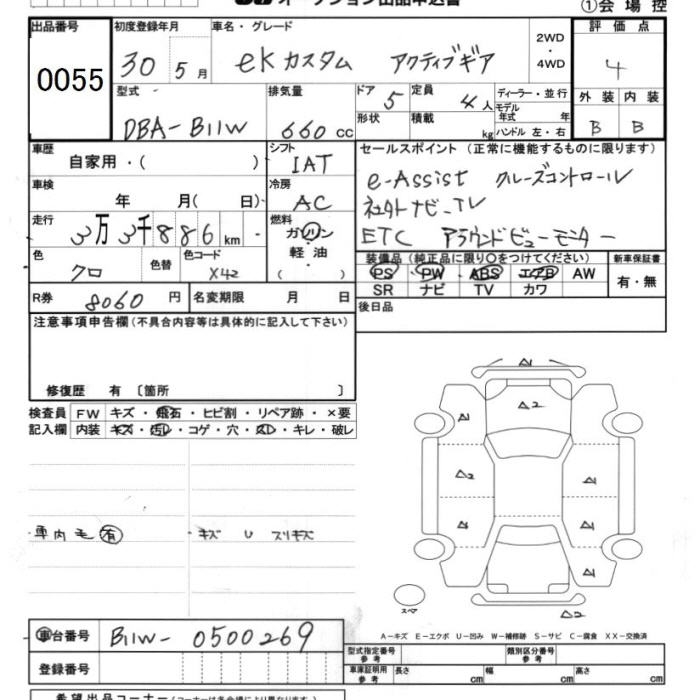 ①会場控
出品番号 初度登録年月 車名・グレード 2WD・4WD 評価点
0055 30 5月 eKカスタム アクティブギア 4
型式 排気量 ドア 5 定員 4人 ディーラー・並行 外装 内装
DBA-B11W 660cc 形状 積載 kg モデル年式 年 ハンドル 左・右 B B
車歴 自家用・( ) シフト IAT セールスポイント(正常に機能するものに限ります)
車検 年 月( 日) 冷房 AC e-Assist クルーズコントロール
走行 3万3千886km 燃料 ガソリン・軽油・ 社外ナビ、TV
ETC アラウンドビューモニター
色 クロ 色替 色コード X42 装備品(純正品に限り○をつけてください) 新車保証書
PS PW ABS エアB AW 有・無
SR ナビ TV カワ
R券 8060円 名変期限 月 日 後日品
注意事項申告欄(不具合内容等は具体的に記入して下さい)
修復歴 有〔箇所 〕
検査員 FW キズ・飛石・ヒビ割・リペア跡・×要
記入欄 内装 キズ・汚レ・コゲ・穴・スレ・キレ・破レ
車内毛有 キズ U スリキズ
A1
A2
A1
A2 A1
A1 A1
A1
スペア A2
A-キズ E-エクボ U-凹み W-補修跡 S-サビ C-腐食 XX-交換済
車台番号 B11W-0500269
型式指定番号 参考 類別区分番号 参考
登録番号 車庫証明用 参考 長さ cm 幅 cm 高さ cm
希望出品コーナー